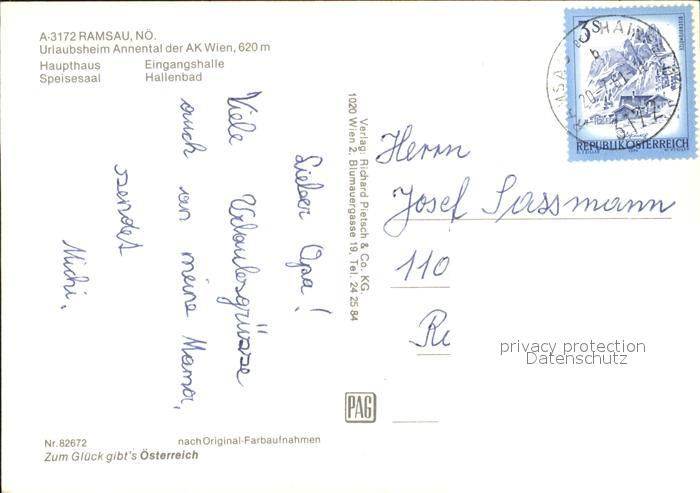 A-3172 RAMSAU, NÖ.
Urlaubsheim Annental der AK Wien, 620 m
Haupthaus Eingangshalle
Speisesaal Hallenbad
Lieber Opa!
Viele Urlaubsgrüsse
auch an meine Mama,
sendet
Michi.
Nr. 82672 nach Original-Farbaufnahmen
Zum Glück gibt's Österreich
Verlag: Richard Pietsch & Co. KG.
1020 Wien 2, Blumauergasse 19, Tel. 24 25 84
PAG
3S
REPUBLIK ÖSTERREICH
RAMSAU
3172
Herrn
Josef Sassmann
110
Re
privacy protection
Datenschutz